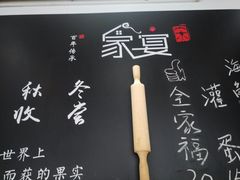 百年传承
家宴
秋收
冬尝
世界上
而获的果实
全家福
灌
海